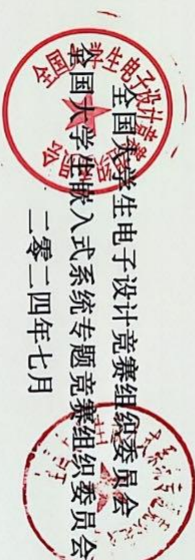 全国大学生电子设计竞赛组织委员会
全国大学生嵌入式系统专题竞赛组织委员会
二零二四年七月